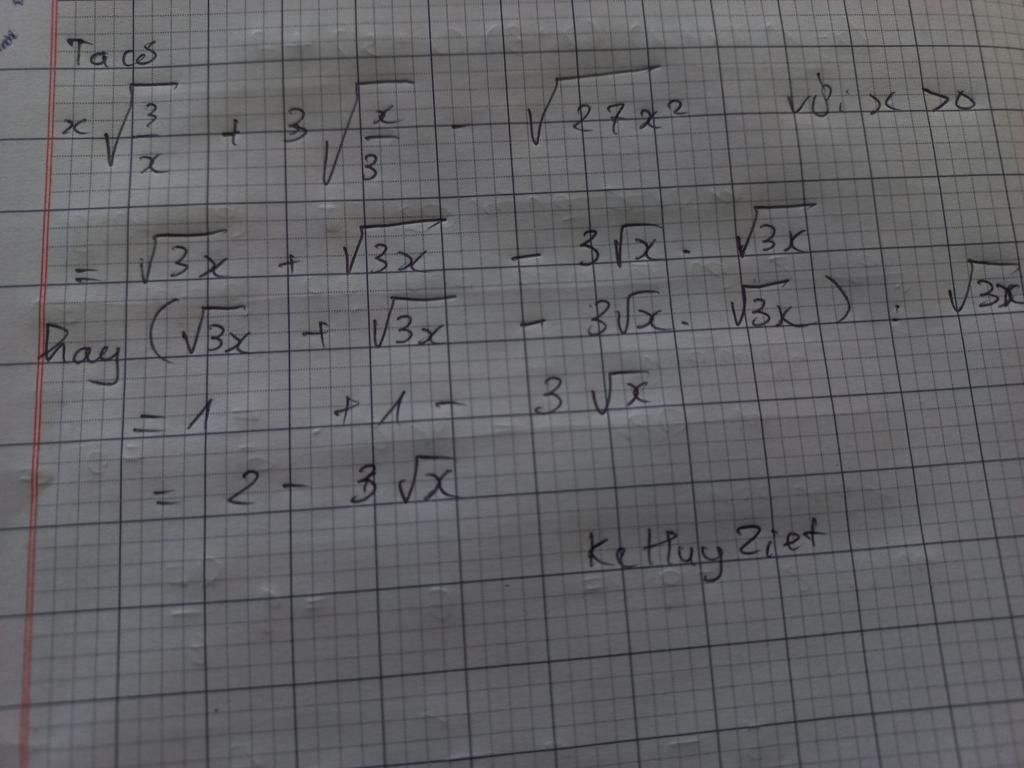 Ta có
x√(3/x) + 3√(x/3) - √(27x²) với x > 0
= √3x + √3x - 3√x . √3x
hay (√3x + √3x - 3√x . √3x) : √3x
= 1 + 1 - 3√x
= 2 - 3√x